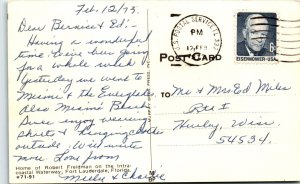 Feb. 12/73.
Dear Bernice & Ed:-
Having a wonderful
time. We've been going
for a whole week
Yesterday we went to
Miami & the Everglades
Also Miami Beach
enjoy wearing
shorts & lounging
outside. Will write
more. Love from
Home of Robert Friedman on the Intra-
coastal Waterway, Fort Lauderdale, Florida.
#71-91
U.S. POSTAL SERVICE, FL 333
PM
12 FEB
POST CARD
6c
EISENHOWER·USA
TO
Mr & Mrs Ed Miles
Rte 1
Hurley, Wisc.
54534.